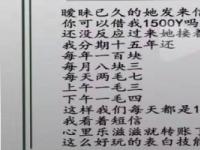 暧昧已久的她发来信
你可以借我1500Y吗
还没反应过来她接着
我分期十五年还
每年一百块
每月八块三
每天两毛七
上午一毛四
下午一毛三
这样我们每天都是1
我看着短信
心里乐滋滋就转账了
这么好玩的表白技能